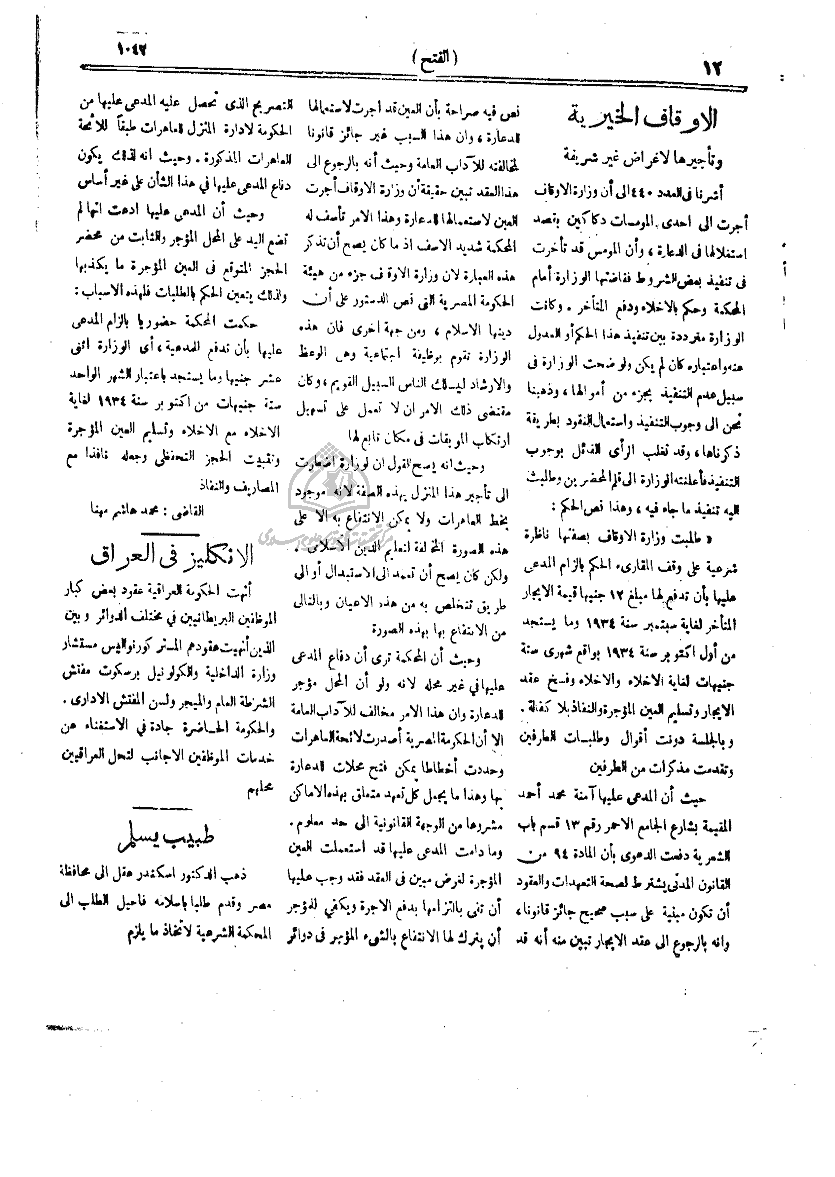 ١٢
(الفتح)
١٠٤٢
الاوقاف الخيرية
وتأجيرها لاغراض غير شريفة
أشرنا فى العدد ٤٤٠ الى أن وزارة الاوقاف
أجرت الى احدى المومسات دكاكين بقصد
استغلالها فى الدعارة، وأن المومس قد تأخرت
فى تنفيذ بعض الشروط فقاضتها الوزارة أمام
المحكمة وحكم بالاخلاء ودفع المتأخر . وكانت
الوزارة مترددة بين تنفيذ هذا الحكم أو العدول
عنه واعتباره كان لم يكن ولو ضحت الوزارة فى
سبيل عدم التنفيذ بجزء من أموالها، وذهبنا
نحن الى وجوب التنفيذ واستعمال النقود بطريقة
ذكرناها، وقد تغلب الرأى القائل بوجوب
التنفيذ فأعلنته الوزارة الى قلم المحضرين وطلبت
اليه تنفيذ ما جاء فيه، وهذا نص الحكم :
« طلبت وزارة الاوقاف بصفتها ناظرة
شرعية على وقف القارىء الحكم بالزام المدعى
عليها بأن تدفع لها مبلغ ١٢ جنيها قيمة الايجار
المتأخر لغاية سبتمبر سنة ١٩٣٤ وما يستجد
من أول اكتوبر سنة ١٩٣٤ بواقع شهرى ستة
جنيهات لغاية الاخلاء والاخلاء وفسخ عقد
الايجار وتسليم العين المؤجرة والنفاذ بلا كفالة .
وبالجلسة دونت أقوال وطلبات الطرفين
وتقدمت مذكرات من الطرفين
حيث أن المدعى عليها آمنة محمد أحمد
المقيمة بشارع الجامع الاحمر رقم ١٣ قسم باب
الشعرية دفعت الدعوى بأن المادة ٩٤ من
القانون المدنى يشترط لصحة التعهدات والعقود
أن تكون مبنية على سبب صحيح جائز قانونا،
وانه بالرجوع الى عقد الايجار تبين منه أنه قد
نص فيه صراحة بأن العين قد أجرت لاستعمالها
للدعارة، وان هذا السبب غير جائز قانونا
لمخالفته للآداب العامة وحيث أنه بالرجوع الى
هذا العقد تبين حقيقة أن وزارة الاوقاف أجرت
العين لاستعمالها للدعارة وهذا الامر تأسف له
المحكمة شديد الاسف اذ ما كان يصح أن تذكر
هذه العبارة لان وزارة الاوقاف جزء من هيئة
الحكومة المصرية التى نص الدستور على أن
دينها الاسلام، ومن جهة اخرى فان هذه
الوزارة تقوم بوظيفة اجتماعية وهى الوعظ
والارشاد ليسلك الناس السبيل القويم، وكان
مقتضى ذلك الامر ان لا تعمل على تسهيل
ارتكاب الموبقات فى مكان تابع لها
وحيث انه يسح القول ان لوزارة اضطرت
الى تأجير هذا المنزل بهذه الصفة لانه موجود
بخط العاهرات ولا يمكن الانتفاع به الا على
هذه الصورة المخالفة لتعليم الدين الاسلامى .
ولكن كان يصح أن تعمد الى الاستبدال أو الى
طريق تتخلص به من هذه الاعيان وبالتالى
من الانتفاع بها بهذه الصورة
وحيث أن المحكمة ترى أن دفاع المدعى
عليها فى غير محله لانه ولو أن المحل مؤجر
للدعارة وان هذا الامر مخالف للآداب العامة
الا أن الحكومة المصرية أصدرت لائحة العاهرات
وحددت أخطاطا يمكن فتح محلات للدعارة
بها وهذا ما يجعل كل تعهد متعلق بهذه الاماكن
مشروعا من الوجهة القانونية الى حد معلوم .
وما دامت المدعى عليها قد استعملت العين
المؤجرة لغرض مبين فى العقد فقد وجب عليها
أن تفى بالتزامها بدفع الاجرة ويكفى للمؤجر
أن يترك لها الانتفاع بالشىء المؤجر فى دوائر
التصريح الذى تحصل عليه المدعى عليها من
الحكومة لادارة المنزل للعاهرات طبقاً للائحة
العاهرات المذكورة . وحيث انه لذلك يكون
دفاع المدعى عليها فى هذا الشأن على غير أساس
وحيث أن المدعى عليها ادعت انها لم
تضع اليد على المحل المؤجر والثابت من محضر
الحجز المتوقع فى العين المؤجرة ما يكذبها
ولذلك يتعين الحكم بالطلبات فلهذه الاسباب :
حكمت المحكمة حضوريا بالزام المدعى
عليها بأن تدفع للمدعية، أى الوزارة اثنى
عشر جنيها وما يستجد باعتبار الشهر الواحد
ستة جنيهات من اكتوبر سنة ١٩٣٤ لغاية
الاخلاء مع الاخلاء وتسليم العين المؤجرة
وتثبيت الحجز التحفظى وجعله نافذا مع
المصاريف والنفاذ
القاضى : محمد هاشم مهنا
الانكليز فى العراق
أنهت الحكومة العراقية عقود بعض كبار
الموظفين البريطانيين فى مختلف الدوائر وبين
الذين أنهيت عقودهم المستر كورنواليس مستشار
وزارة الداخلية والكولونيل برسكوت مفتش
الشرطة العام والميجر ولسن المفتش الادارى .
والحكومة الحاضرة جادة فى الاستغناء عن
خدمات الموظفين الاجانب لتحل العراقيين
محلهم
طبيب يسلم
ذهب الدكتور اسكندر هقل الى محافظة
مصر وقدم طلبا باسلامه فاحيل الطلب الى
المحكمة الشرعية لاتخاذ ما يلزم